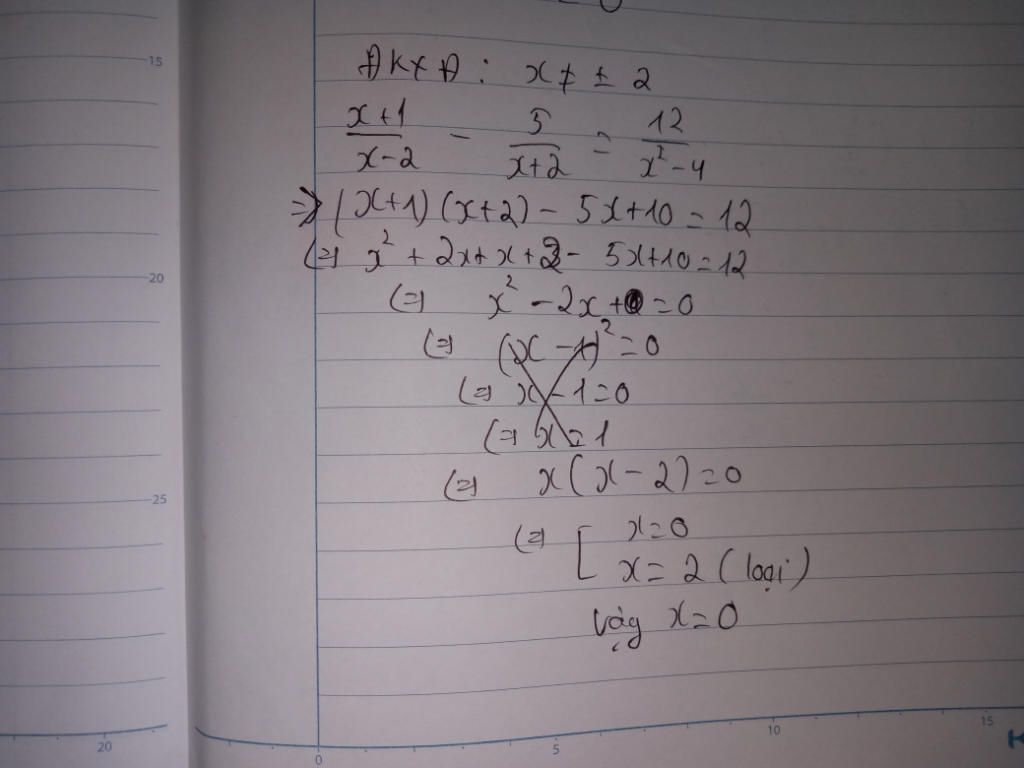 ĐKXĐ : x ≠ ± 2
(x+1)/(x-2) - 5/(x+2) = 12/(x²-4)
=> (x+1)(x+2) - 5x+10 = 12
(=) x² + 2x+x+2 - 5x+10=12
(=) x² - 2x+0=0
(=) (x-1)²=0
(=) x-1=0
(=) x=1
(=) x(x-2)=0
(=) [ x=0
x=2 (loại)
Vậy x=0
15
20
25
20
0
5
10
15